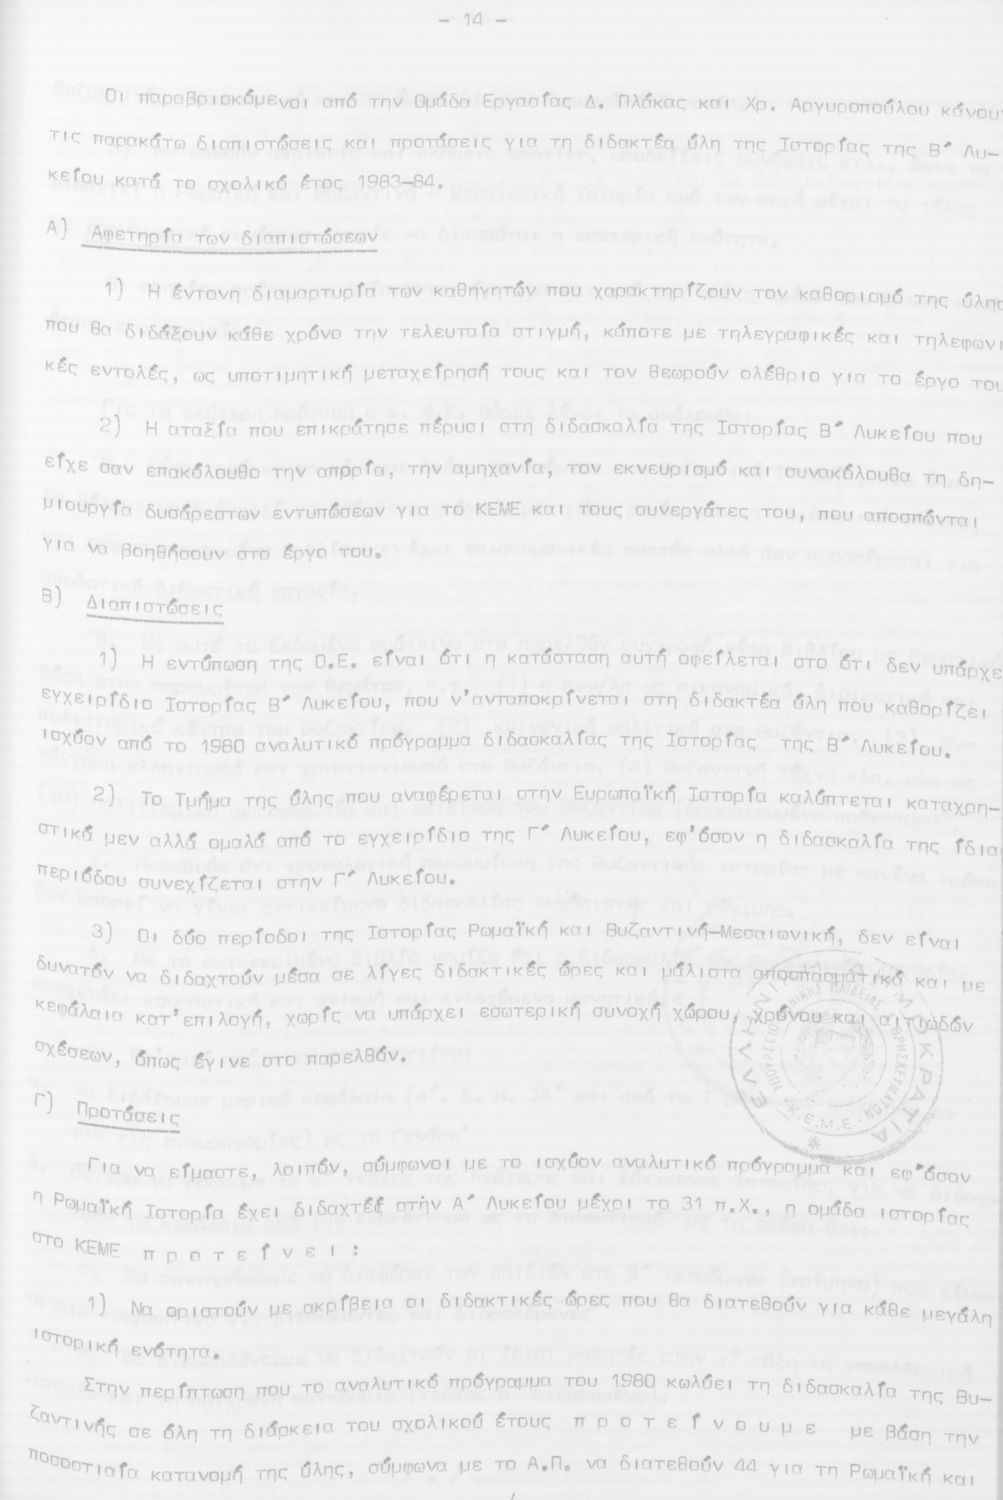 - 14 -
Οι παραβρισκόμενοι από την Ομάδα Εργασίας Δ. Πλάκας και Χρ. Αργυροπούλου κάνουν
τις παρακάτω διαπιστώσεις και προτάσεις για τη διδακτέα ύλη της Ιστορίας της Β΄ Λυ-
κείου κατά το σχολικό έτος 1983-84.
Α) Αφετηρία των διαπιστώσεων
1) Η έντονη διαμαρτυρία των καθηγητών που χαρακτηρίζουν τον καθορισμό της ύλης
που θα διδάξουν κάθε χρόνο την τελευταία στιγμή, κάποτε με τηλεγραφικές και τηλεφωνι
κές εντολές, ως υποτιμητική μεταχείρησή τους και τον θεωρούν ολέθριο για το έργο του
2) Η αταξία που επικράτησε πέρυσι στη διδασκαλία της Ιστορίας Β΄ Λυκείου που
είχε σαν επακόλουθο την απορία, την αμηχανία, τον εκνευρισμό και συνακόλουθα τη δη-
μιουργία δυσάρεστων εντυπώσεων για το ΚΕΜΕ και τους συνεργάτες του, που αποσπώνται
για να βοηθήσουν στο έργο του.
Β) Διαπιστώσεις
1) Η εντύπωση της Ο.Ε. είναι ότι η κατάσταση αυτή οφείλεται στο ότι δεν υπάρχε
εγχειρίδιο Ιστορίας Β΄ Λυκείου, που ν'ανταποκρίνεται στη διδακτέα ύλη που καθορίζει
ισχύον από το 1980 αναλυτικό πρόγραμμα διδασκαλίας της Ιστορίας της Β΄ Λυκείου.
2) Το Τμήμα της ύλης που αναφέρεται στην Ευρωπαϊκή Ιστορία καλύπτεται καταχρη-
στικά μεν αλλά ομαλά από το εγχειρίδιο της Γ΄ Λυκείου, εφ'όσον η διδασκαλία της ίδια
περιόδου συνεχίζεται στην Γ΄ Λυκείου.
3) Οι δύο περίοδοι της Ιστορίας Ρωμαϊκή και Βυζαντινή-Μεσαιωνική, δεν είναι
δυνατόν να διδαχτούν μέσα σε λίγες διδακτικές ώρες και μάλιστα αποσπασματικά και με
κεφάλαια κατ'επιλογή, χωρίς να υπάρχει εσωτερική συνοχή χώρου, χρόνου και αιτιωδών
σχέσεων, όπως έγινε στο παρελθόν.
ΕΛΛΗΝΙΚΗ ΔΗΜΟΚΡΑΤΙΑ
ΥΠΟΥΡΓΕΙΟ ΕΘΝΙΚΗΣ ΠΑΙΔΕΙΑΣ ΚΑΙ ΘΡΗΣΚΕΥΜΑΤΩΝ
Κ.Ε.Μ.Ε.
Γ) Προτάσεις
Για να είμαστε, λοιπόν, σύμφωνοι με το ισχύον αναλυτικό πρόγραμμα και εφ'όσον
η Ρωμαϊκή Ιστορία έχει διδαχτεί στην Α΄ Λυκείου μέχρι το 31 π.Χ., η ομάδα ιστορίας
στο ΚΕΜΕ π ρ ο τ ε ί ν ε ι :
1) Να οριστούν με ακρίβεια οι διδακτικές ώρες που θα διατεθούν για κάθε μεγάλη
ιστορική ενότητα.
Στην περίπτωση που το αναλυτικό πρόγραμμα του 1980 κωλύει τη διδασκαλία της Βυ-
ζαντινής σε όλη τη διάρκεια του σχολικού έτους π ρ ο τ ε ί ν ο υ μ ε με βάση την
ποσοστιαία κατανομή της ύλης, σύμφωνα με το Α.Π. να διατεθούν 44 για τη Ρωμαϊκή και